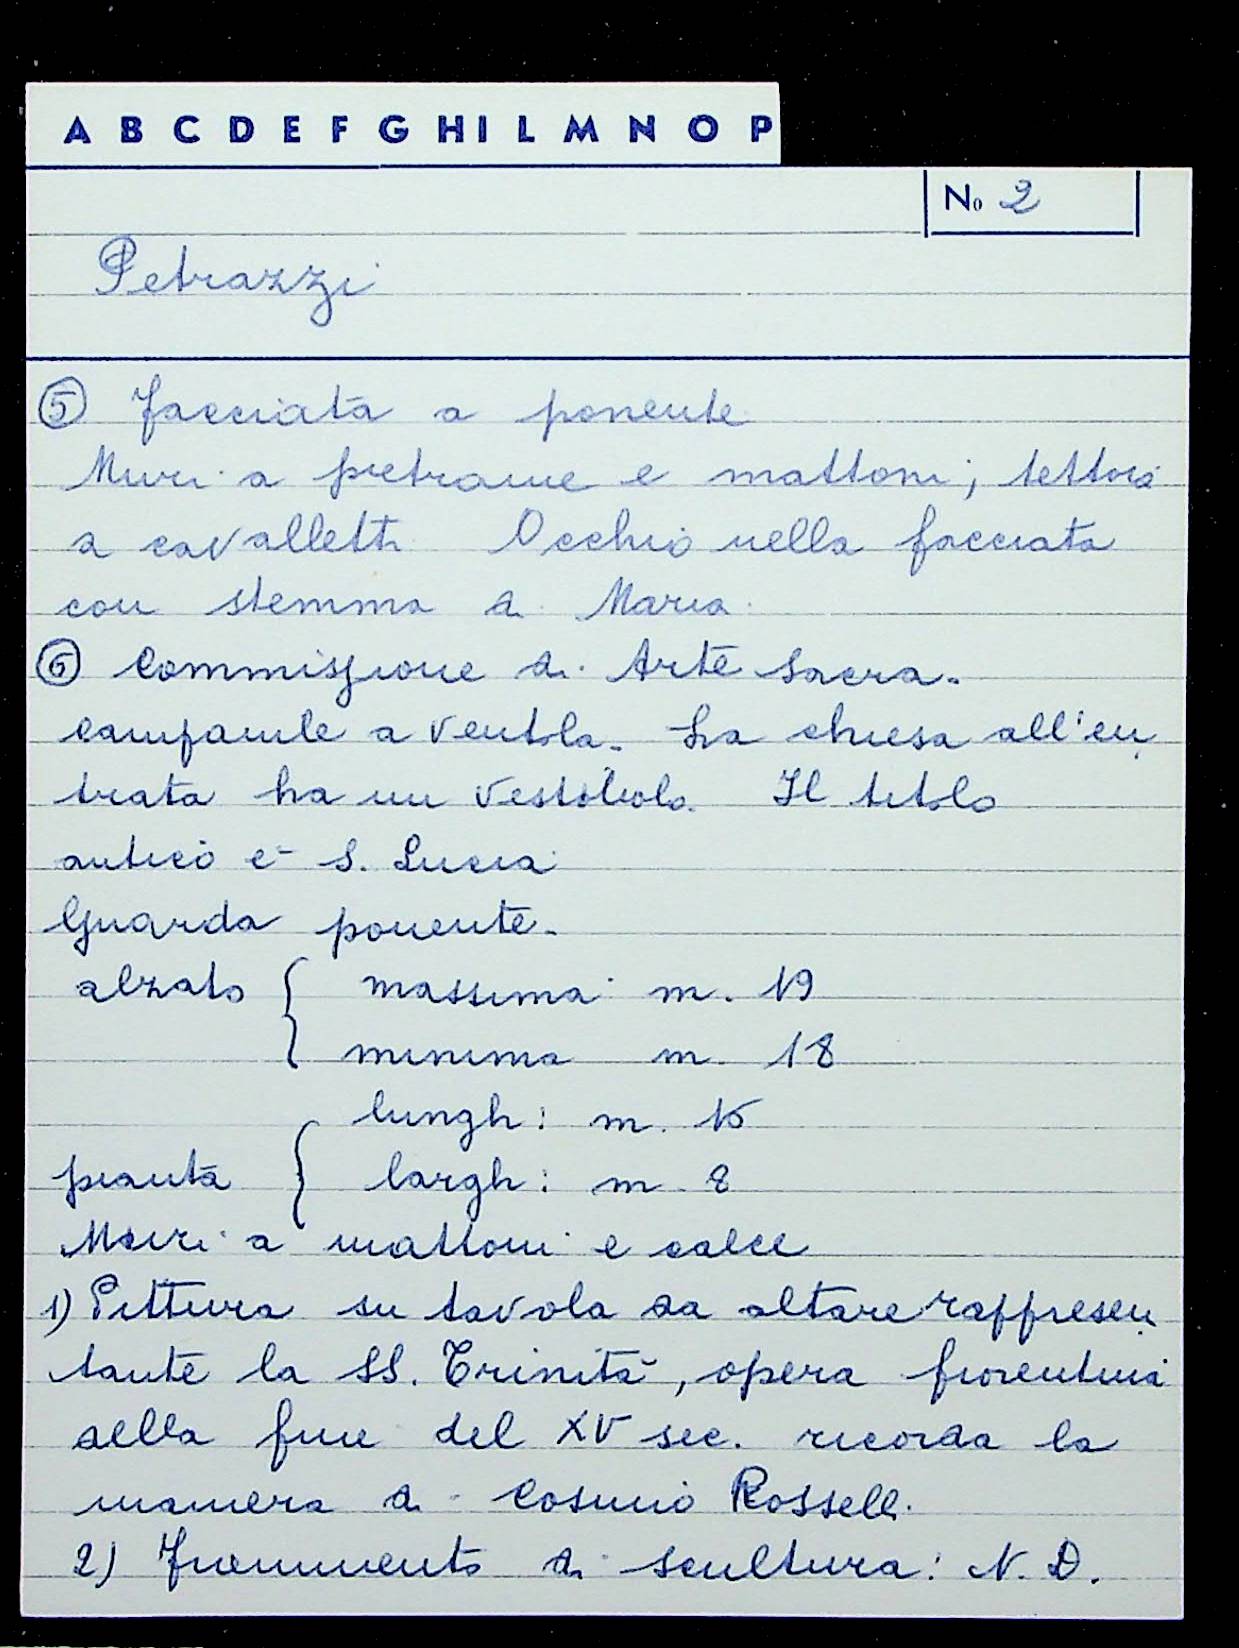 A B C D E F G H I L M N O P
No 2
Petrazzi
5 Facciata a ponente
Muri a pietrame e mattoni; tettoia
a cavalletti Occhio nella facciata
con stemma di Maria
6 Commissione di Arte Sacra.
Campanile a ventola. La chiesa all'en
trata ha un vestibolo. Il titolo
antico è S. Lucia
Guarda ponente.
alzato { massima m. 19
minima m. 18
lungh: m. 16
pianta { largh: m. 8
Muri a mattoni e calce
1) Pittura su tavola da altare rappresen
tante la SS. Trinità, opera fiorentina
della fine del XV sec. ricorda la
maniera di Cosimo Rosselli.
2) Frammento di scultura: N. D.